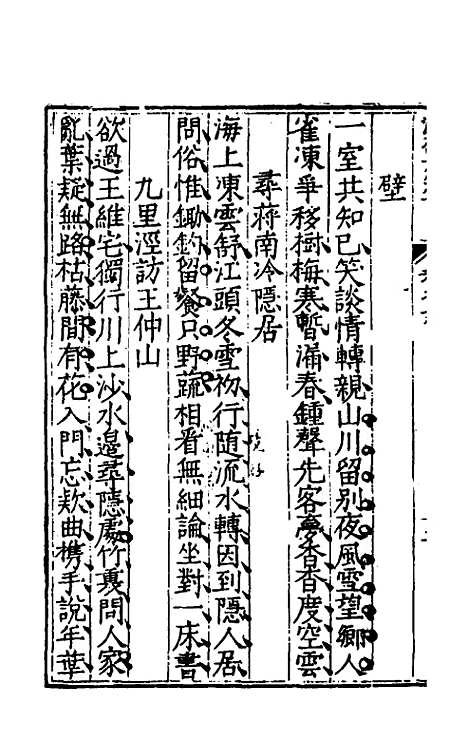 壁
一室共知己笑談情轉親山川留別夜風雪望鄉人
雀凍爭移樹梅寒暫漏春鍾聲先客夢香香度空雲
尋蔣南泠隱居
海上凍雲舒江頭冬雪初行隨流水轉因到隱人居
問俗惟鋤釣留餐只野蔬相看無細論坐對一床書
九里涇訪王仲山
欲過王維宅獨行川上沙水邊尋隱處竹裏問人家
亂葉疑無路枯藤間有花入門忘欵曲携手說年華